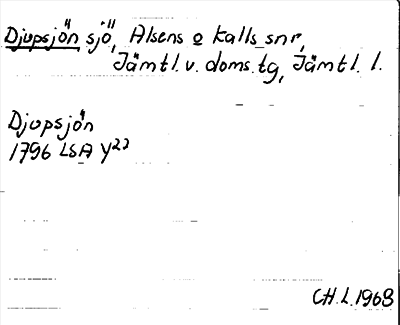 Djupsjön sjö, Alsens o Kalls snr,
Jämtl. v. doms. tg, Jämtl. l.
Djupsjön
1796 LSA Y22
CH.L.1968